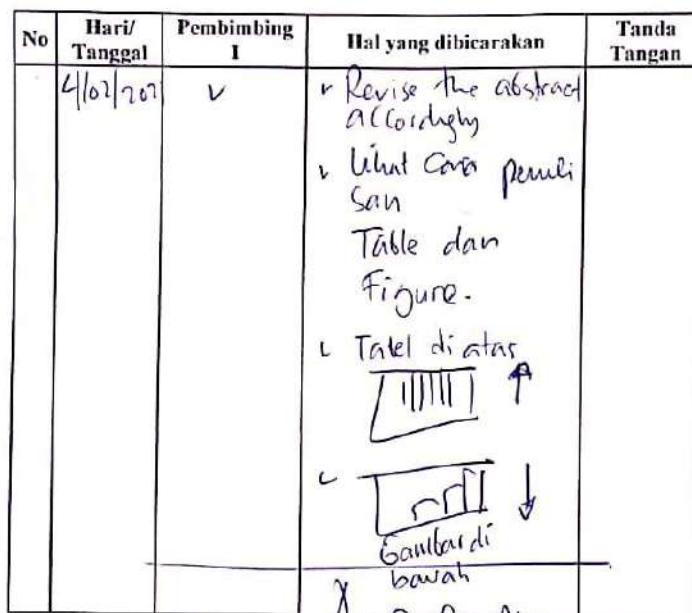 No Hari/ Tanggal Pembimbing I Hal yang dibicarakan Tanda Tangan
4/02/202 v v Revise the abstract
accordingly
v Lihat Cara penuli
san
Table dan
Figure.
Tabel di atas
Gambar di
bawah